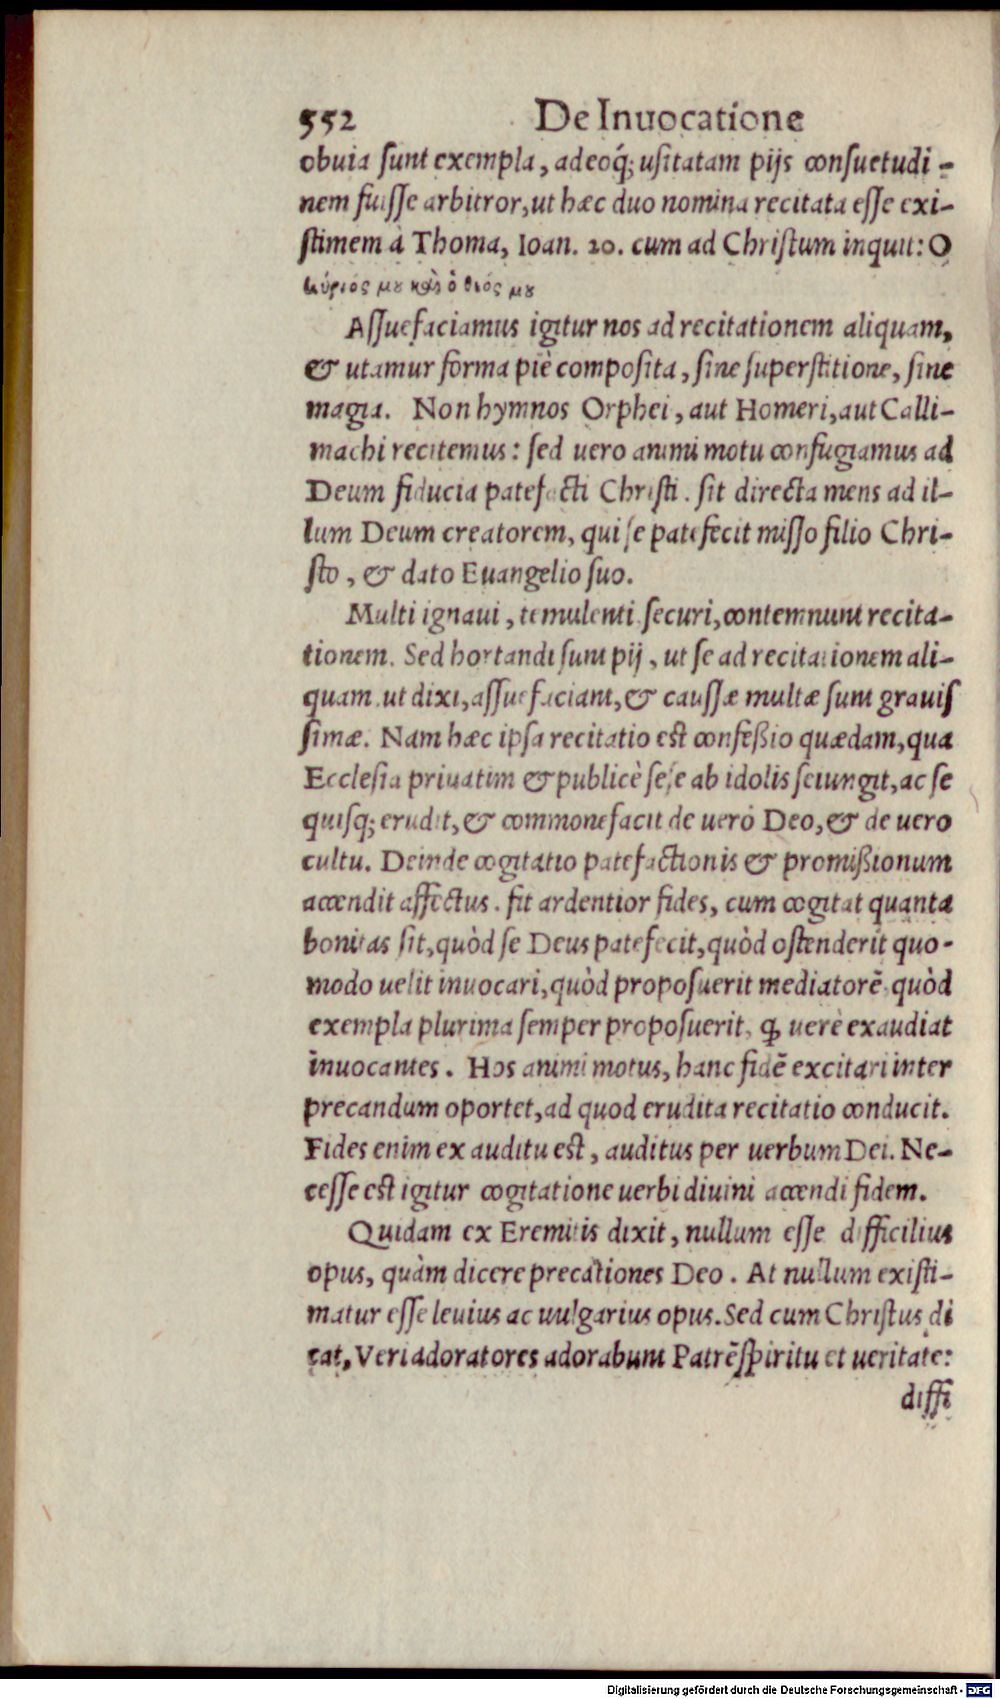 552 De Inuocatione
obuia sunt exempla, adeoq́; usitatam pijs consuetudi-
nem fuisse arbitror, ut hæc duo nomina recitata esse exi-
stimem à Thoma, Ioan. 20. cum ad Christum inquit: O
κύριός μȣ καὶ ὁ θεός μȣ
Assuefaciamus igitur nos ad recitationem aliquam,
& utamur forma piè composita, sine superstitione, sine
magia. Non hymnos Orphei, aut Homeri, aut Calli-
machi recitemus: sed uero animi motu confugiamus ad
Deum fiducia patefacti Christi. sit directa mens ad il-
lum Deum creatorem, qui se patefecit misso filio Chri-
sto, & dato Euangelio suo.
Multi ignaui, temulenti, securi, contemnunt recita-
tionem. Sed hortandi sunt pij, ut se ad recitationem ali-
quam, ut dixi, assuefaciant, & caussæ multæ sunt grauis
simæ. Nam hæc ipsa recitatio est confeßio quædam, qua
Ecclesia priuatim & publicè sese ab idolis seiungit, ac se
quisq; erudit, & commonefacit de uero Deo, & de uero
cultu. Deinde cogitatio patefactionis & promißionum
accendit affectus. fit ardentior fides, cum cogitat quanta
bonitas sit, quòd se Deus patefecit, quòd ostenderit quo-
modo uelit inuocari, quòd proposuerit mediatorẽ, quòd
exempla plurima semper proposuerit, ꝙ uerè exaudiat
inuocantes. Hos animi motus, hanc fidẽ excitari inter
precandum oportet, ad quod erudita recitatio conducit.
Fides enim ex auditu est, auditus per uerbum Dei. Ne-
cesse est igitur cogitatione uerbi diuini accendi fidem.
Quidam ex Eremitis dixit, nullum esse difficilius
opus, quàm dicere precationes Deo. At nullum existi-
matur esse leuius ac uulgarius opus. Sed cum Christus di
cat, Veri adoratores adorabunt Patrẽ spiritu et ueritate:
diffi
Digitalisierung gefördert durch die Deutsche Forschungsgemeinschaft - DFG